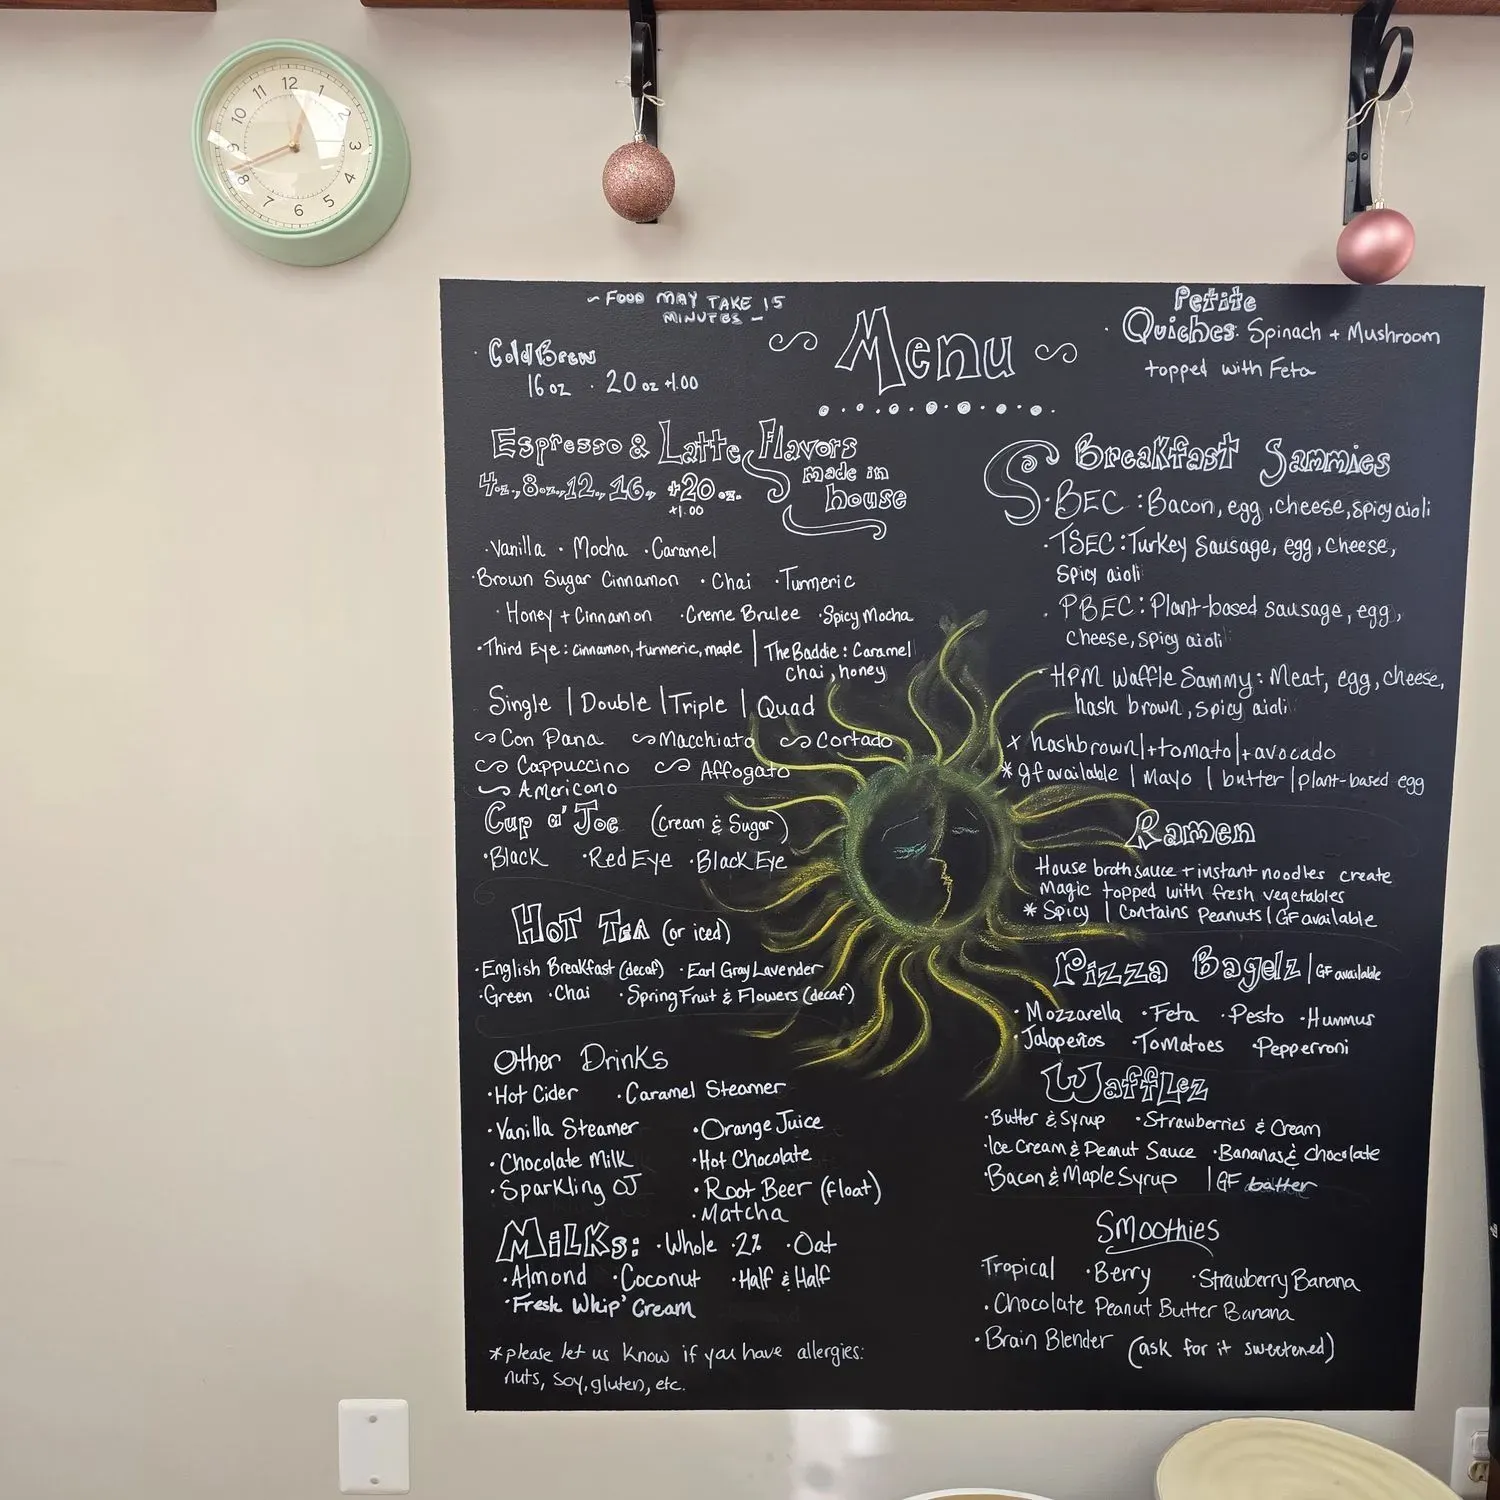 12
1
2
3
4
5
6
7
8
9
10
11
~ FOOD MAY TAKE 15
MINUTES -
Menu
· Cold Brew
16 oz · 20 oz +1.00
Espresso & Latte Flavors
made in
house
4oz., 8oz., 12., 16., +20 oz.
+1.00
· Vanilla · Mocha · Caramel
· Brown Sugar Cinnamon · Chai · Turmeric
· Honey + Cinnamon · Creme Brulee · Spicy Mocha
· Third Eye: cinnamon, turmeric, maple | The Baddie: Caramel
chai, honey
Single | Double | Triple | Quad
Con Pana Macchiato Cortado
Cappuccino Affogato
Americano
Cup a' Joe (Cream & Sugar)
· Black · Red Eye · Black Eye
Hot Tea (or iced)
· English Breakfast (decaf) · Earl Gray Lavender
· Green · Chai · Spring Fruit & Flowers (decaf)
Other Drinks
· Hot Cider · Caramel Steamer
· Vanilla Steamer · Orange Juice
· Chocolate Milk · Hot Chocolate
· Sparkling OJ · Root Beer (float)
· Matcha
Milks: · Whole · 2% · Oat
· Almond · Coconut · Half & Half
· Fresh Whip' Cream
* please let us know if you have allergies:
nuts, soy, gluten, etc.
Petite
· Quiches: Spinach + Mushroom
topped with Feta
Breakfast Sammies
· BEC : Bacon, egg, cheese, spicy aioli
· TSEC : Turkey Sausage, egg, cheese,
spicy aioli
· PBEC : Plant-based sausage, egg,
cheese, spicy aioli
· HPM Waffle Sammy : Meat, egg, cheese,
hash brown, spicy aioli
x hashbrown | + tomato | + avocado
* gf available | Mayo | butter | plant-based egg
Ramen
House broth sauce + instant noodles create
magic topped with fresh vegetables
* Spicy | Contains Peanuts | GF available
Pizza Bagelz | GF available
· Mozzarella · Feta · Pesto · Hummus
· Jalapeños · Tomatoes · Pepperroni
Wafflez
· Butter & Syrup · Strawberries & Cream
· Ice Cream & Peanut Sauce · Bananas & chocolate
· Bacon & Maple Syrup | GF batter
Smoothies
· Tropical · Berry · Strawberry Banana
· Chocolate Peanut Butter Banana
· Brain Blender (ask for it sweetened)